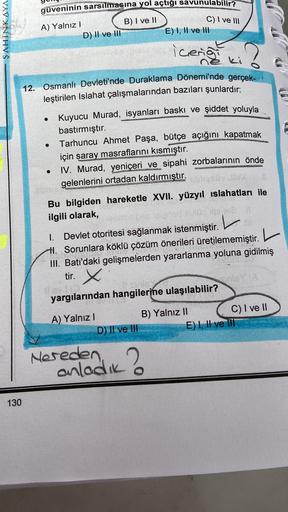 ŞAHİNKAYA
güveninin sarsılmasına yol açtığı savunulabilir?
A) Yalnız I
B) I ve II
C) I ve III
D) II ve III
E) I, II ve III
İçeriği
ne ki ?
12. Osmanlı Devleti'nde Duraklama Dönemi'nde gerçek-
leştirilen Islahat çalışmalarından bazıları şunlardır:
• Kuyucu Murad, isyanları baskı ve şiddet yoluyla
bastırmıştır.
• Tarhuncu Ahmet Paşa, bütçe açığını kapatmak
için saray masraflarını kısmıştır.
• IV. Murad, yeniçeri ve sipahi zorbalarının önde
gelenlerini ortadan kaldırmıştır.
Bu bilgiden hareketle XVII. yüzyıl ıslahatları ile
ilgili olarak,
I. Devlet otoritesi sağlanmak istenmiştir.
II. Sorunlara köklü çözüm önerileri üretilememiştir.
III. Batı'daki gelişmelerden yararlanma yoluna gidilmiş
tir.
yargılarından hangilerine ulaşılabilir?
A) Yalnız I
B) Yalnız II
C) I ve II
D) II ve III
E) I, II ve III
Nereden
anladık ?
130